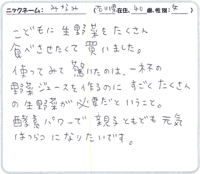 ニックネーム: みなみ (石川県在住, 40歳, 性別: 女)
こどもに生野菜をたくさん
食べさせたくて買いました。
使ってみて驚いたのは、一杯の
野菜ジュースを作るのにすごくたくさん
の生野菜が必要だということ。
酵素パワーで親子ともども元気
はつらつになりたいです。